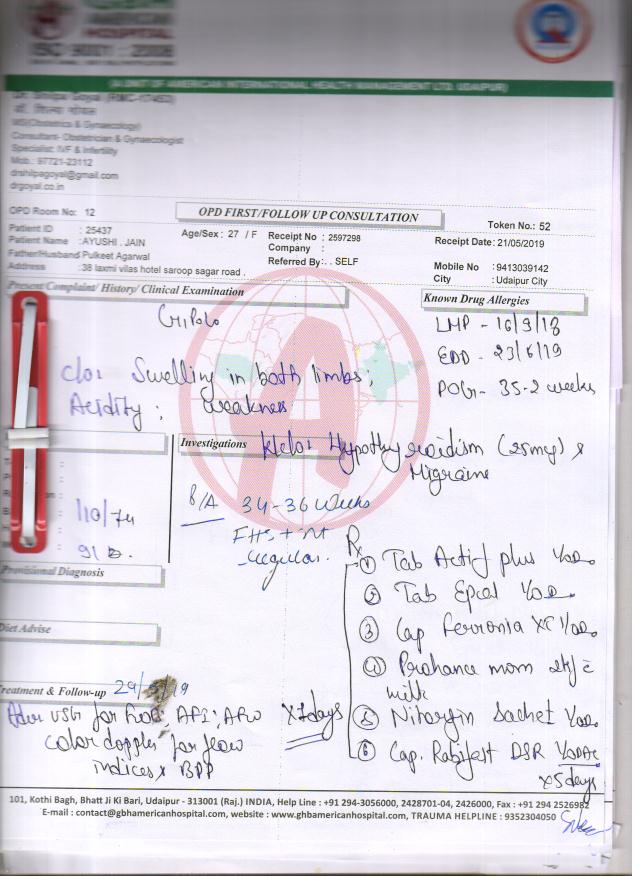 GBH
AMERICAN
HOSPITAL
ISO 9001 : 2008
(A UNIT OF AMERICAN INTERNATIONAL HEALTH MANAGEMENT LTD. UDAIPUR)
Dr. Shilpa Goyal (RMC-17453)
डॉ. शिल्पा गोयल
MS(Obstetrics & Gynaecology)
Consultant- Obstetrician & Gynaecologist
Specialist: IVF & Infertility
Mob.: 97721-23112
drshilpagoyal@gmail.com
drgoyal.co.in
OPD Room No: 12
OPD FIRST/FOLLOW UP CONSULTATION
Token No.: 52
Patient ID : 25437
Patient Name : AYUSHI . JAIN
Age/Sex : 27 / F
Receipt No : 2597298
Receipt Date: 21/05/2019
Company :
Father/Husband Pulkeet Agarwal
Referred By: . . SELF
Mobile No :9413039142
Address :38 laxmi vilas hotel saroop sagar road .
City : Udaipur City
Present Complaint/ History/ Clinical Examination
Known Drug Allergies
G1P0L0
LMP - 16/9/18
EDD - 23/6/19
POG - 35-2 weeks
c/o: Swelling in both limbs;
Acidity; weakness
Investigations
k/c/o: Hypothyroidism (25mg) &
Migraine
110/74
P/A 34-36 weeks
FHS +nt
regular.
Rx
① Tab Actif plus 1/OD.
② Tab Epcal 1/OD.
③ Cap Ferronia XT 1/OD.
④ Prohance mom 2tsf c̄
milk
⑤ Nitorgin Sachet 1/OD.
⑥ Cap. Rabifast DSR 1/OD AC
x5days
Provisional Diagnosis
Diet Advise
Treatment & Follow-up
Adv USG for AFI; AFW x7days
color doppler for flow
indices & BPP
101, Kothi Bagh, Bhatt Ji Ki Bari, Udaipur - 313001 (Raj.) INDIA, Help Line : +91 294-3056000, 2428701-04, 2426000, Fax : +91 294 2526982
E-mail : contact@gbhamericanhospital.com, website : www.ghbamericanhospital.com, TRAUMA HELPLINE : 9352304050